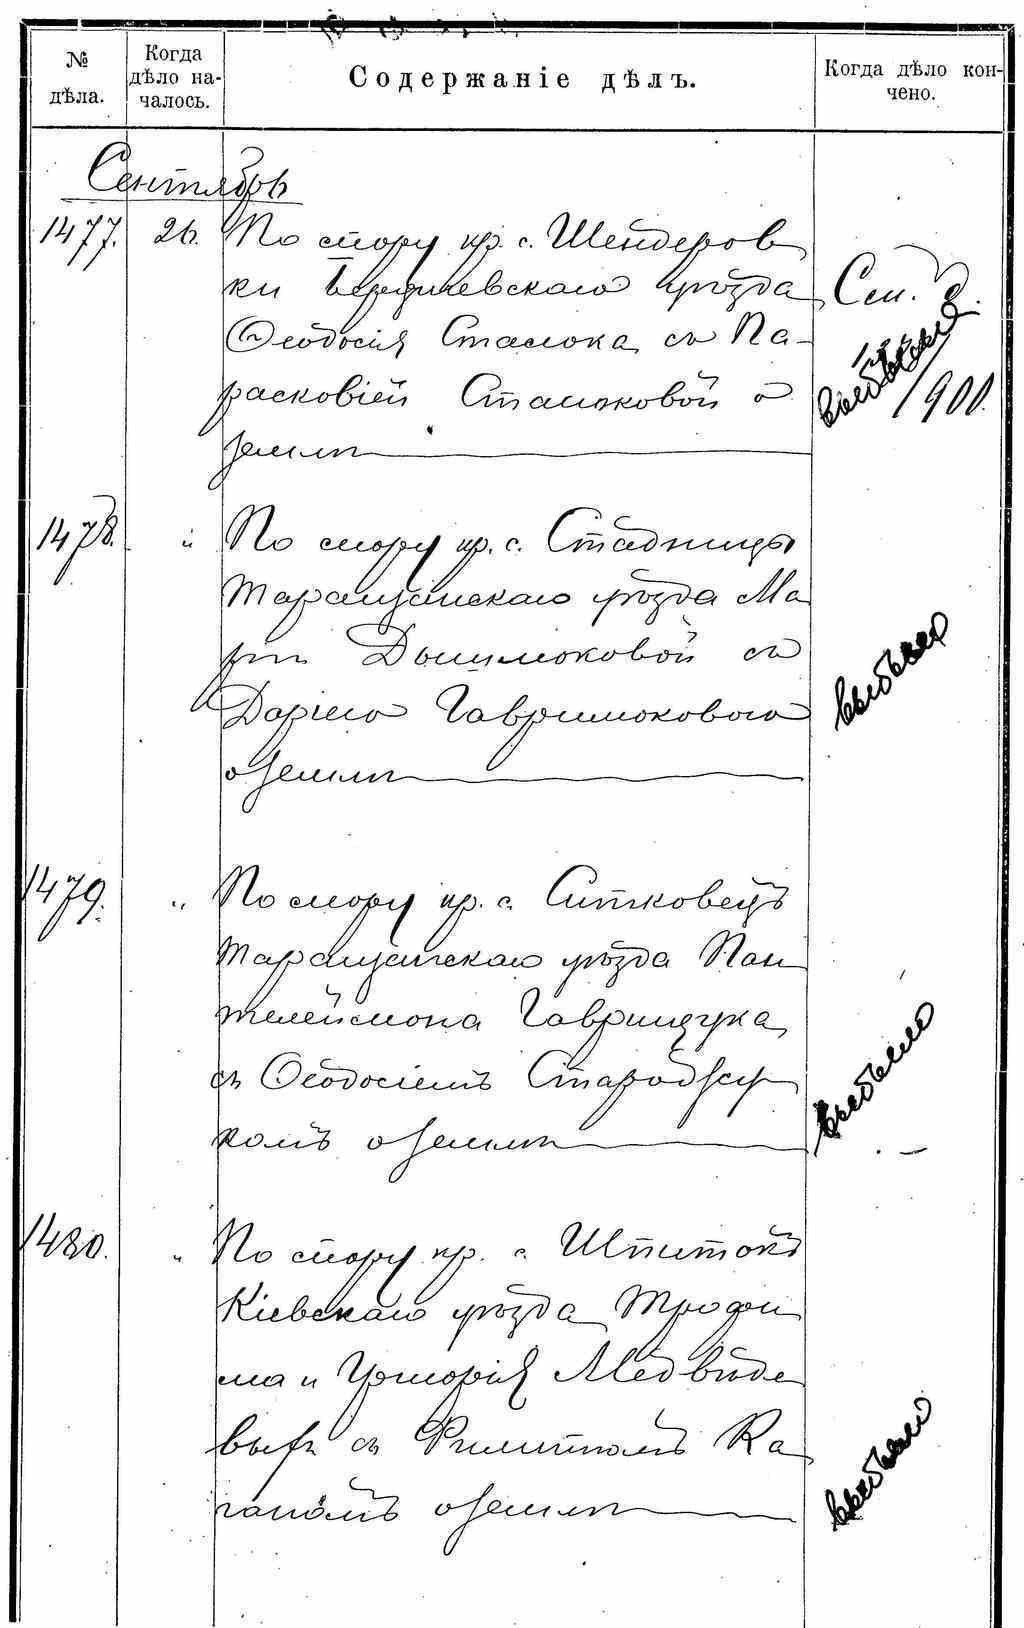 № дѣла.
Когда дѣло на-
чалось.
Содержаніе дѣлъ.
Когда дѣло кон-
чено.
Сентябрь
1477. 26. По спору кр. с. Шендеров
ки Бердичевскаго уѣзда
Ѳеодосія Сталюка съ Па-
расковіей Сталюковой о
землѣ
Сен.
выбыло
1900.
1478. " По спору кр. с. Стадницы
Таращанскаго уѣзда Ма
ріи съ
Даріею Гаврилюковою
о землѣ
выбыло
1479. " По спору кр. с. Ситковецъ
Таращанскаго уѣзда Пан
телеймона Гаврищука
съ Ѳеодосіемъ
комъ о землѣ
выбыло
1480. " По спору кр. с. Шпитокъ
Кіевскаго уѣзда Трофи
ма и Григорія Медвѣде
выхъ съ Филиппомъ Ка
о землѣ
выбыло